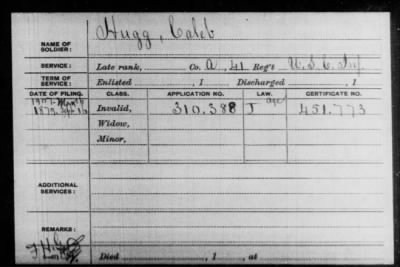 NAME OF SOLDIER: Hugg, Caleb
SERVICE: Late rank, Co. A, 41 Reg't U.S.C. Inf.
TERM OF SERVICE: Enlisted , 1 Discharged , 1
DATE OF FILING. CLASS. APPLICATION NO. LAW. CERTIFICATE NO.
1879 Invalid, 310.388 J 451.773
Widow,
Minor,
ADDITIONAL SERVICES:
REMARKS:
Died , 1 , at